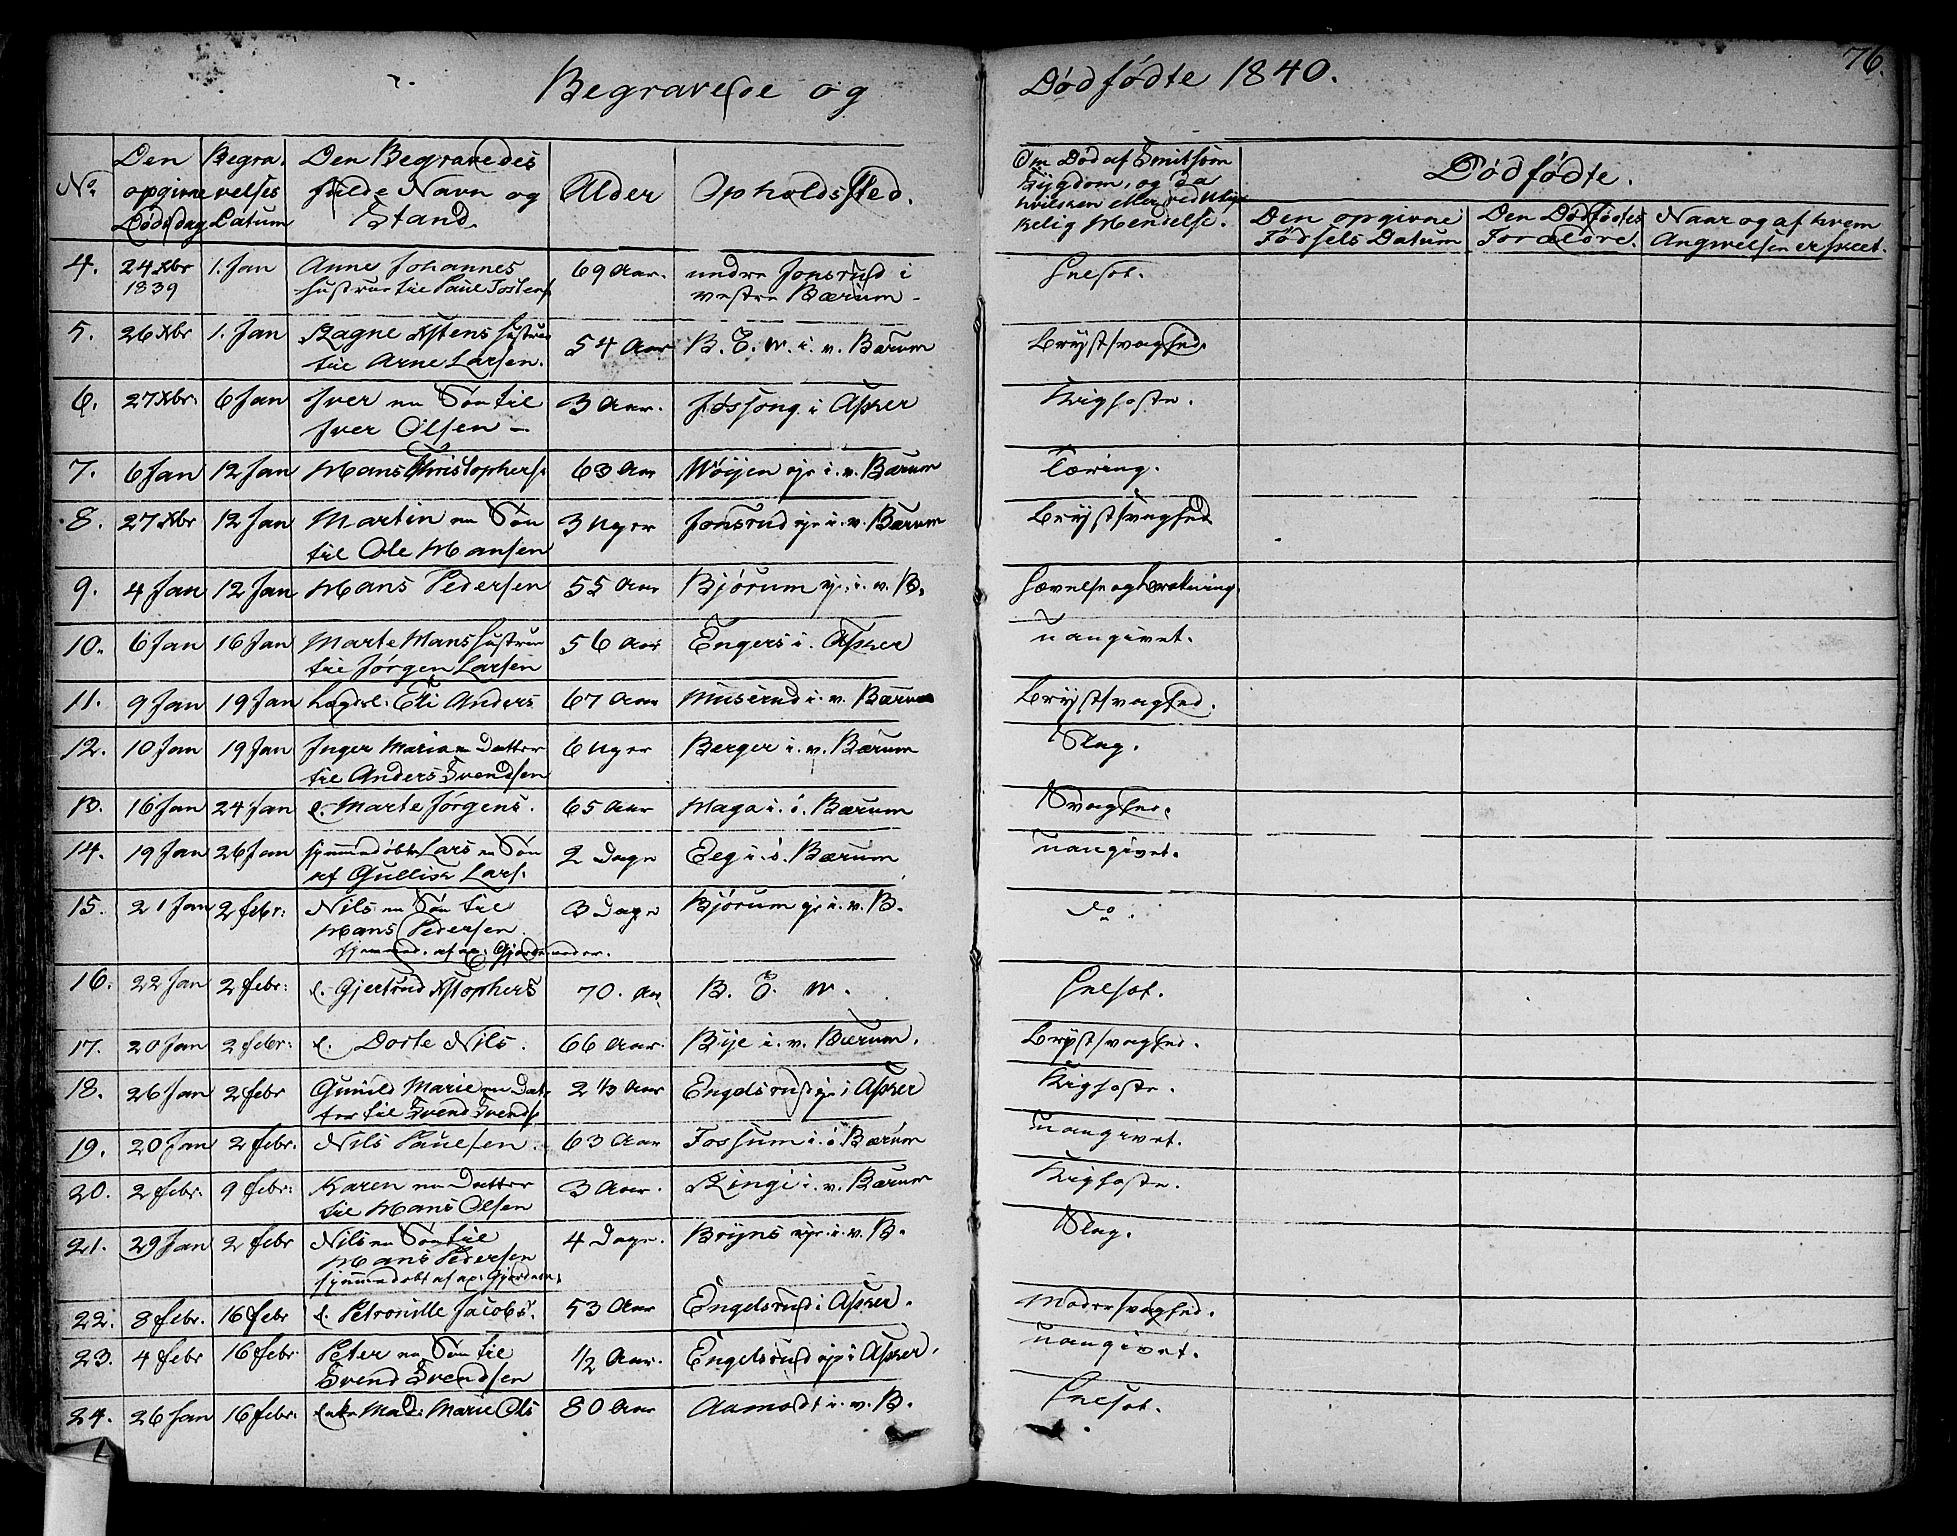 76.
Begravede og Dødfødte 1840.
No.
Den opgivne Dødsdag
Begravelses Datum
Den Begravedes fulde Navn og Stand
Alder
Opholdssted.
Om Død af Smitsom Sygdom, og da hvilken eller ved Ulykkelig Hendelse.
Dødfødte.
Den opgivne Fødsels Datum
Den Dødfødtes Forældre.
Naar og af hvem Angivelsen er skeet.
4. 24 Xbr 1839 1. Jan Anne Johannes 69 Aar. nedre Jonsrud i
Hustrue til Paul Tostens vestre Bærum
5. 26 Xbr 1. Jan Ragne Xstens Hustrue 54 Aar B. E. W. i. v. Bærum Brystsvaghed
til Arne Larsen.
6. 27 Xbr. 6 Jan Iver en Søn til 3 Aar. i Asker Kighoste.
Iver Olsen
7. 6 Jan 12 Jan Hans Christophers. 63 Aar Wøijen eje i. v. Bærum Tæring.
8. 27 Xbr 12 Jan Martin en Søn 3 Uger Jonsrud eje i. v. Bærum Brystsvaghed
til Ole Hansen
9. 4 Jan 12 Jan Hans Pedersen 55 Aar Bjørum eje. i. v. B. Hævelse og
10. 6 Jan 16 Jan Marte Hans Hustrue 56 Aar Engers i. Asker uangivet.
til Jørgen Larsen
11. 9 Jan 19 Jan Lægdsl. Eli Anders 67 Aar Muserud i. v. Bærum Brystsvaghed.
12. 10 Jan 19 Jan Inger Maria en Datter 6 Uger Berger i. v. Bærum Slag.
til Anders Svendsen
13. 16 Jan 24 Jan e. Marte Jørgens. 65 Aar Haga i. ö. Bærum Svaghed.
14. 19 Jan 26 Jan hjemmedøbt Lars en Søn 2 Dage Eeg i. ö. Bærum uangivet.
af Gullik Lars.
15. 21 Jan 2 febr: Nils en Søn til 3 Dage Bjørum eje i. v. B. do.
Hans Pedersen.
hjemmed. af ex. Gjordemoder.
16. 22 Jan 2 febr: e. Gjertrud Xstophers 70. Aar B. E. W.
17. 20 Jan 2 febr: e. Dorte Nils. 66 Aar. Bije i. v. Bærum. Brystsvaghed.
18. 26 Jan 2 febr Gunild Marie en Dat- 2 1/3 Aar Engelsrud eje i Asker Kighoste.
ter til Svend Svends.
19. 20 Jan 2 febr. Nils Paulsen 63 Aar Fossum i. ö Bærum uangivet.
20. 2 febr. 9 febr: Karen en Datter 3 Aar. Ringi i. v. Bærum Kighoste.
til Hans Olsen
21. 29 Jan 2 febr Nils en Søn til 4 Dage. Bryns eje. i. v. B. Slag.
Hans Pedersen
hjemmedøbt af ex. Gjordem.
22. 8 febr. 16 febr e. Petronille Jacobs. 53 Aar Engelsrud i Asker. Modersvaghed.
23. 4 febr 16 febr. Peter en Søn til 1/2 Aar. Engelsrud eje i Asker. uangivet.
Svend Svendsen
24. 26 Jan 16 febr. Enke Mad: Marie Ols 80 Aar Aamodt i. v. B.